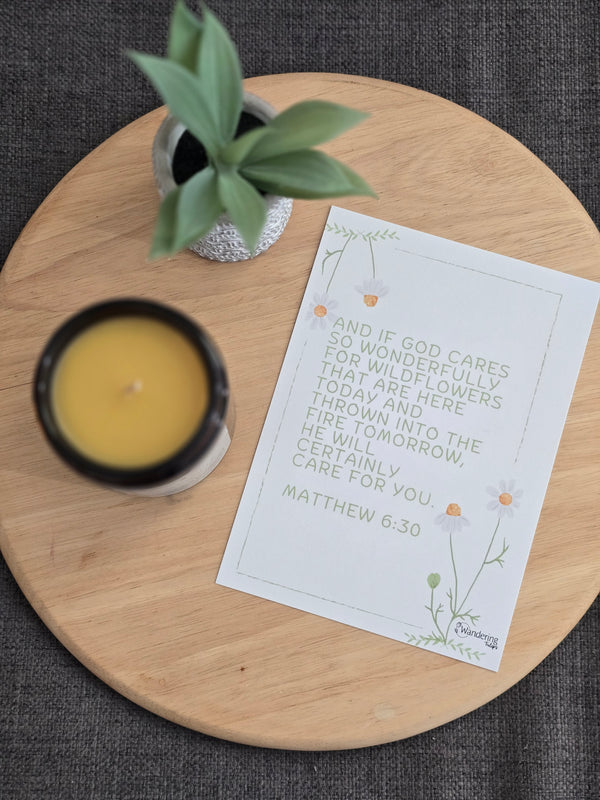 AND IF GOD CARES
SO WONDERFULLY
FOR WILDFLOWERS
THAT ARE HERE
TODAY AND
THROWN INTO THE
FIRE TOMORROW,
HE WILL
CERTAINLY
CARE FOR YOU.
MATTHEW 6:30
Wandering